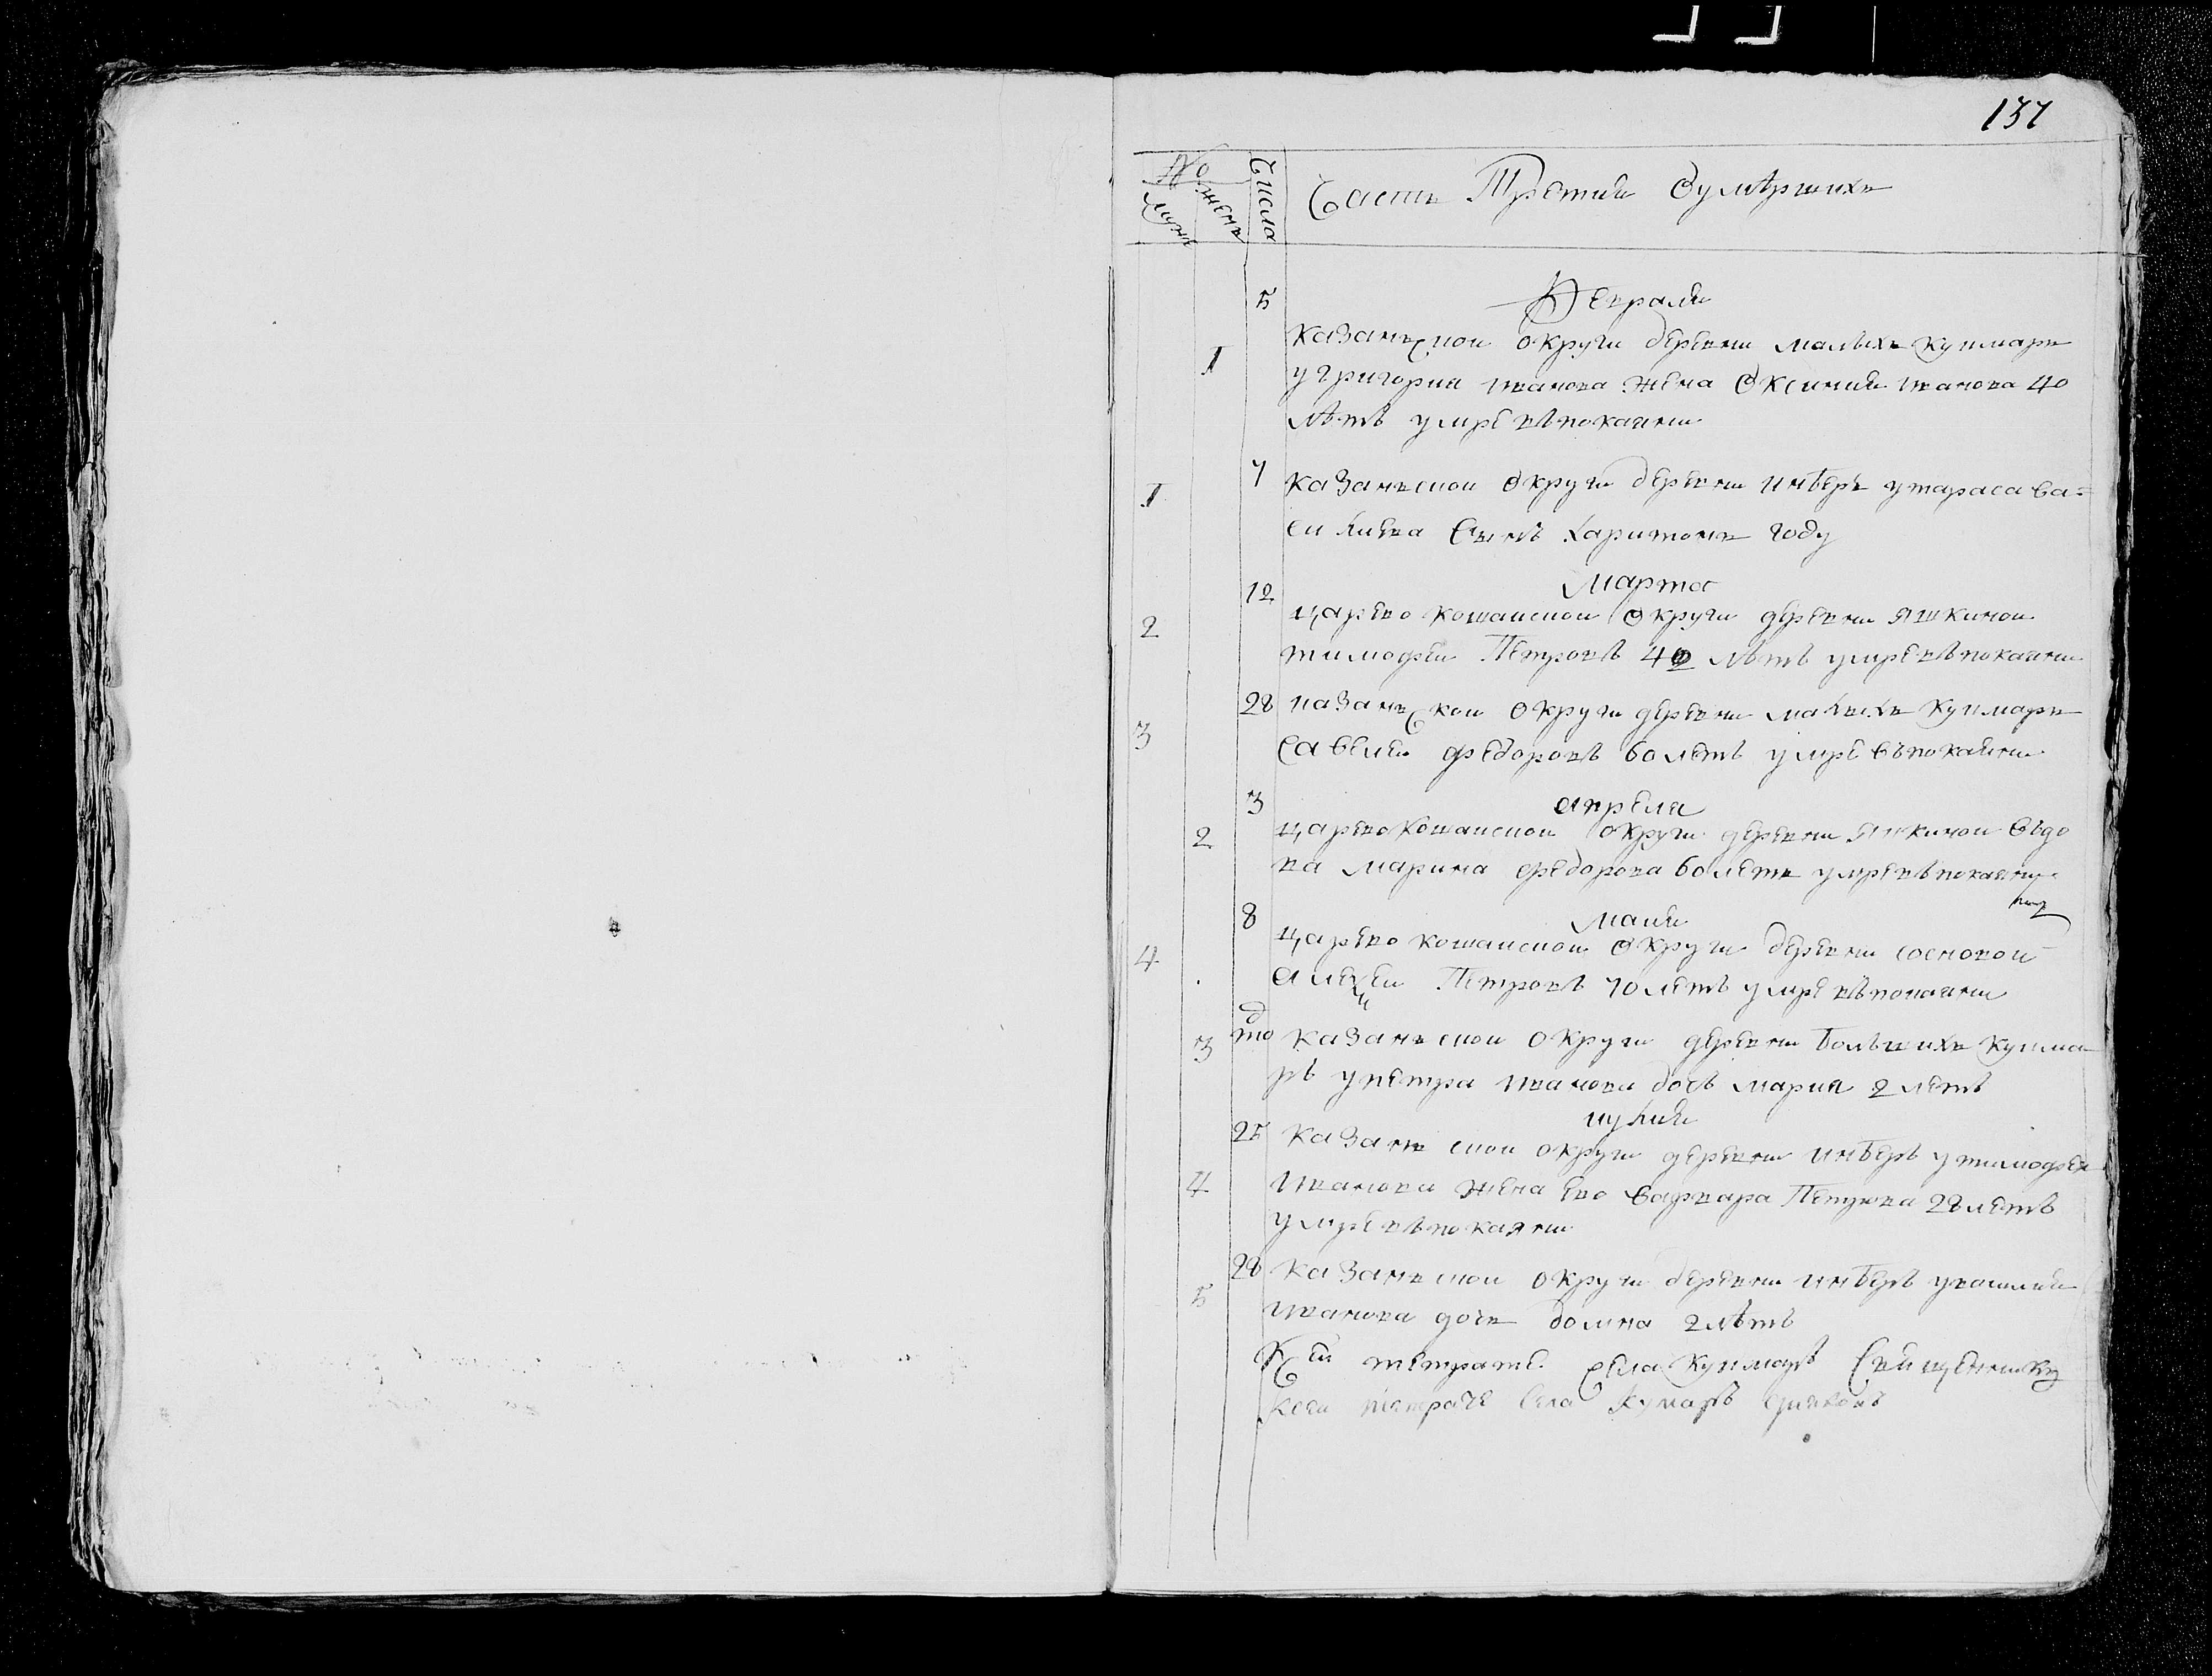 137
№
мужъ
женъ
Числа
Часть Третия Оумершихъ
5 Февраля
1 Казанской округи деревни малыхъ купмаръ
у григория иванова жена Оксиния иванова 40
лѣтъ умре въ покаянии
1 7 Казанской округи деревни имберъ у тараса ва=
сильева сынъ харитонъ году
марта
2 12 царевококшайской округи деревни яшкиной
тимофей Петровъ 40 лѣтъ умре въ покаянии
3 28 казанской округи деревни малыхъ купмаръ
савелей федоровъ 60 летъ умре въ покаянии
апреля
2 3 царевококшайской округи деревни яшкиной вдо
ва марина федорова 60 летъ умре въ покаянии
майя
4 8 царевококшайской округи деревни сосновой
алексей Петровъ 70 летъ умре въ покаянии
3 то д казанской округи деревни большихъ купма
ръ у петра иванова дочь мария 2 летъ
иулия
25 казанской округи деревни имберъ у тимофея
4 иванова жена ево варвара Петрова 28 летъ
умре въ покаянии
5 28 казанской округи деревни имберъ у василия
иванова дочь домна 2 лѣтъ
К сей тетрате села купмаръ священникъ
к сей тетраче села Кумаръ